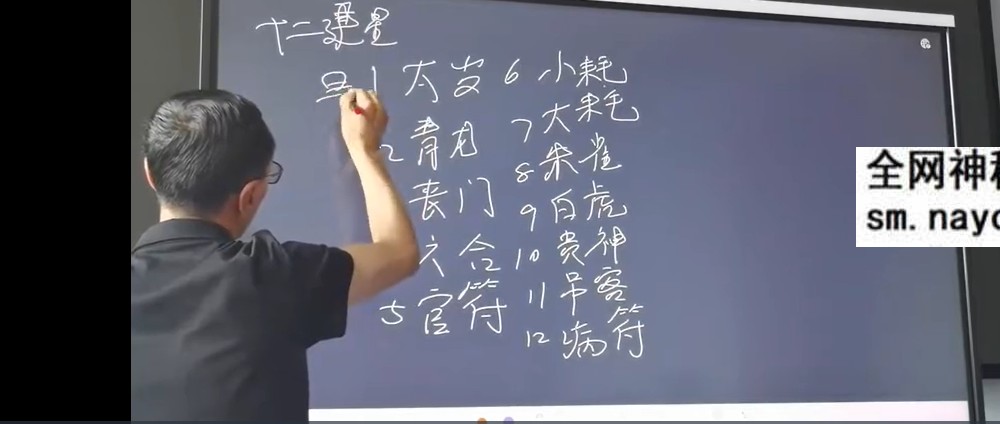 十二建星
1 太岁
2 青龙
丧门
六合
5 官符
6 小耗
7 大耗
8 朱雀
9 白虎
10 贵神
11 吊客
12 病符
全网神
sm.nayc